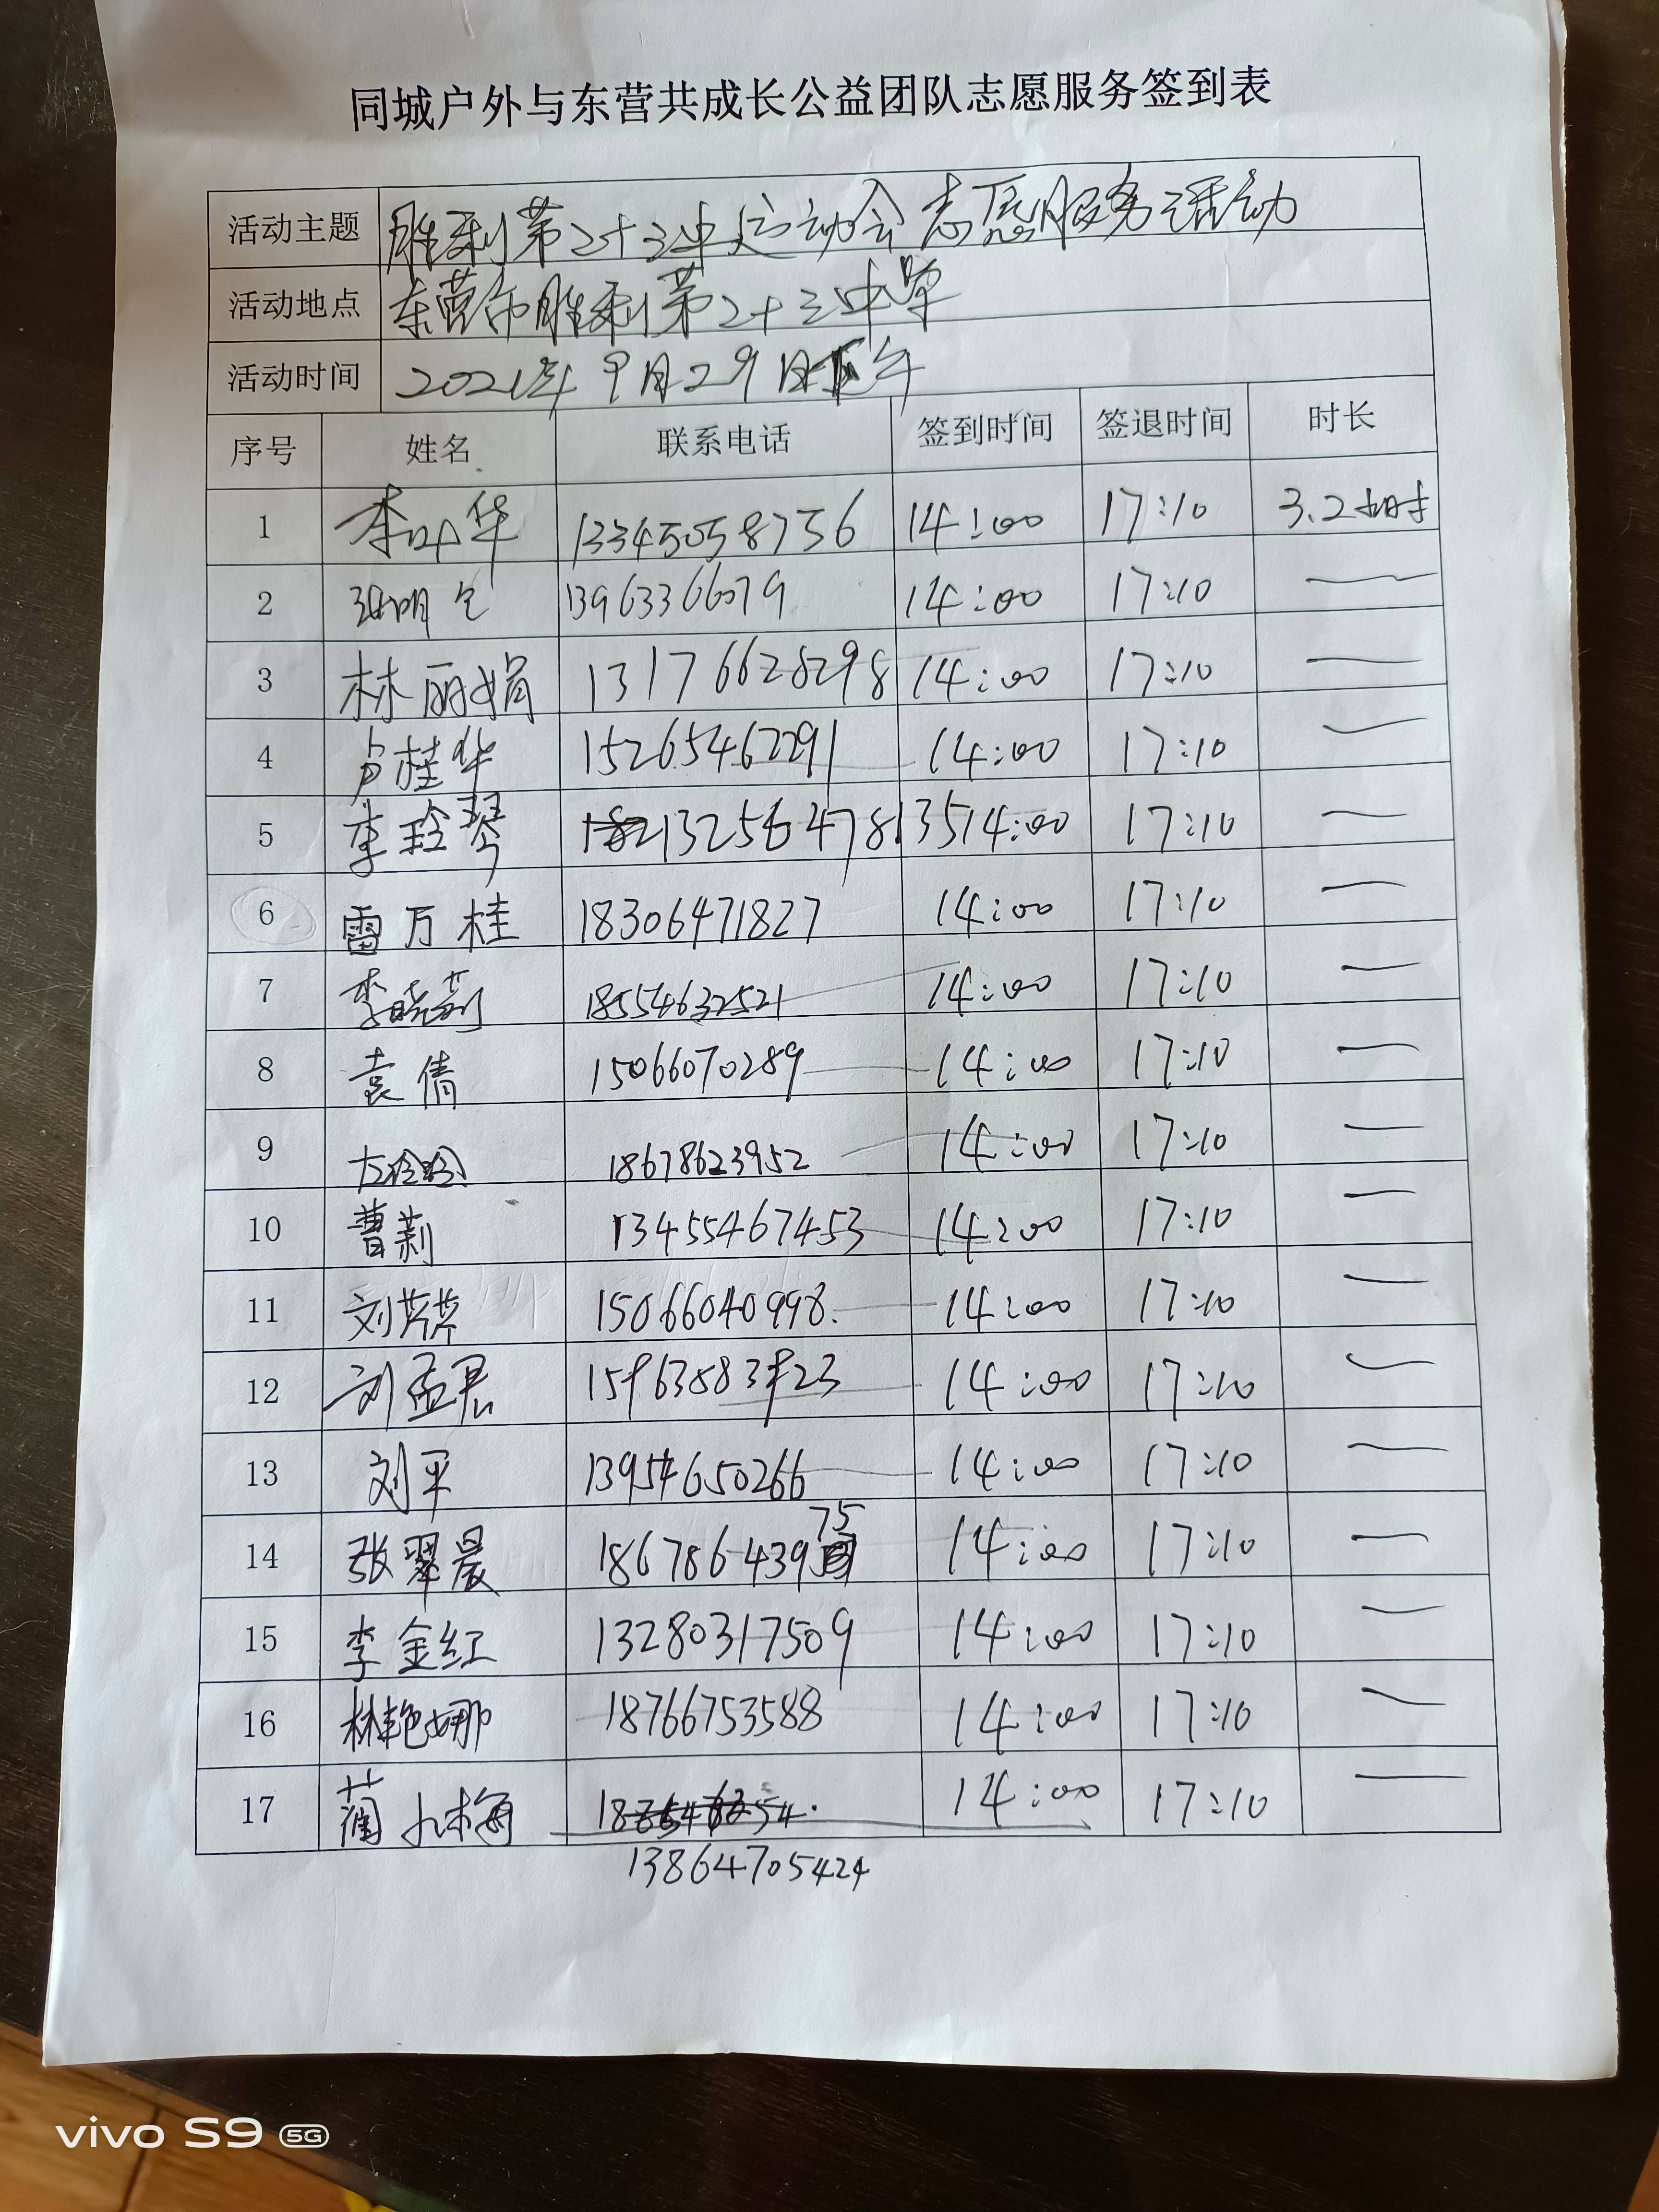 同城户外与东营共成长公益团队志愿服务签到表
活动主题 胜利第二十三中运动会志愿服务活动
活动地点 东营市胜利第二十三中学
活动时间 2021年9月29日下午
序号 姓名 联系电话 签到时间 签退时间 时长
1 李叶华 13345058756 14:00 17:10 3.2小时
2 13963366079 14:00 17:10 —
3 林丽娟 13176628298 14:00 17:10 —
4 卢桂华 15265462291 14:00 17:10 —
5 李玲琴 13256478135 14:00 17:10 —
6 雷万桂 18306471827 14:00 17:10 —
7 李晓莉 18554632521 14:00 17:10 —
8 袁倩 15066070289 14:00 17:10 —
9 18678623952 14:00 17:10 —
10 曹莉 13455467453 14:00 17:10 —
11 刘芹芹 15066040998. 14:00 17:10 —
12 刘孟君 14:00 17:10 —
13 刘平 13954650266 14:00 17:10 —
14 张翠晨 18678643975 14:00 17:10 —
15 李金红 13280317509 14:00 17:10 —
16 林艳娜 18766753588 14:00 17:10 —
17 14:00 17:10 —
13864705424
vivo S9 5G